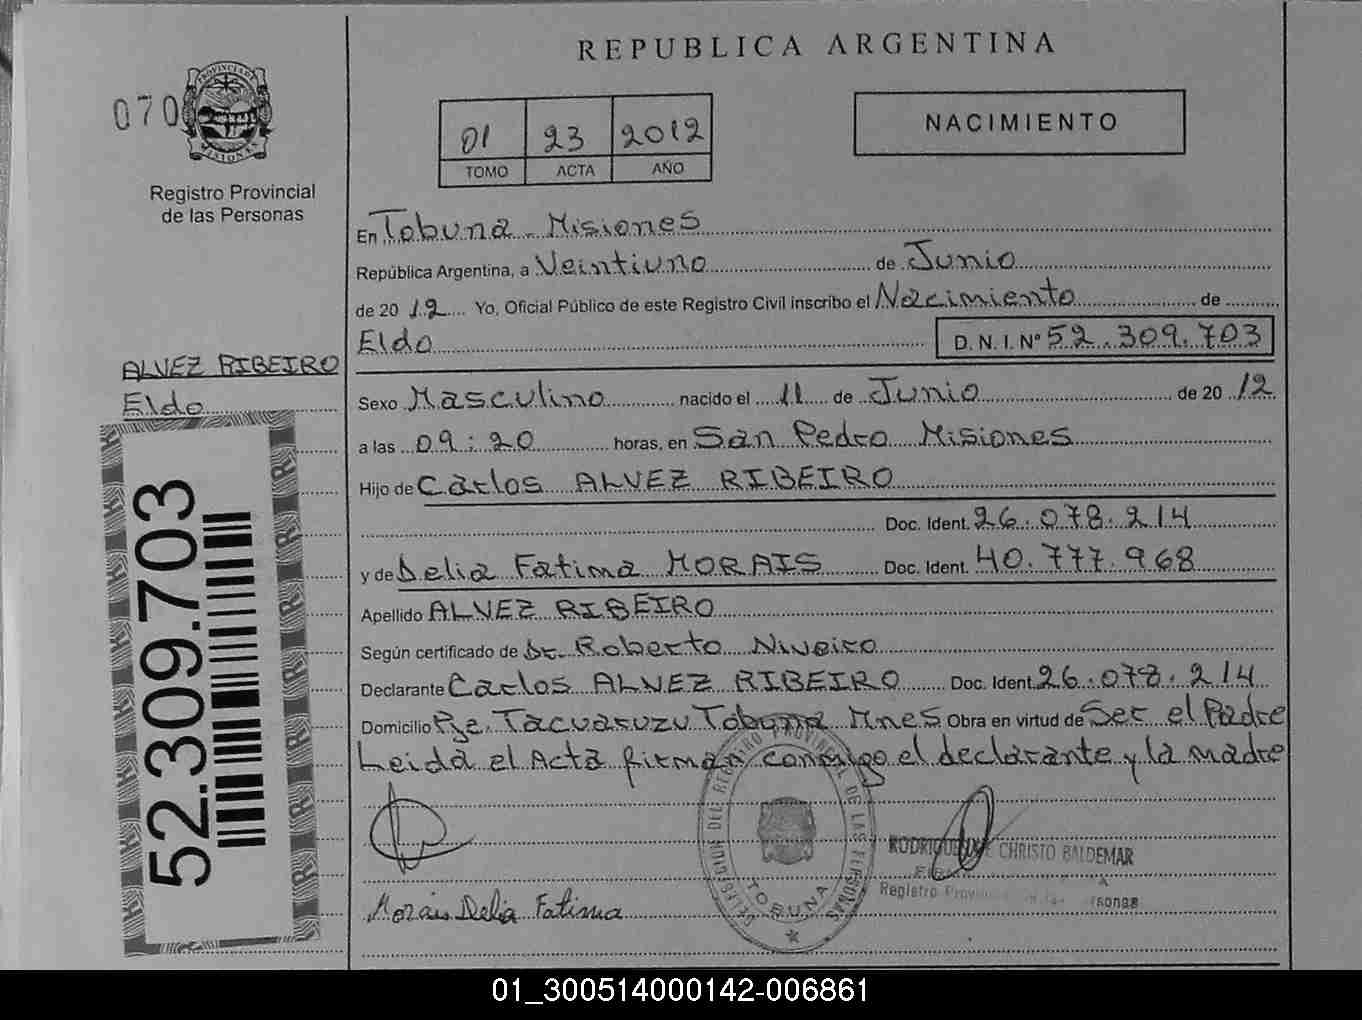 REPUBLICA ARGENTINA
070
PROVINCIA DE MISIONES
Registro Provincial
de las Personas
01 23 2012
TOMO ACTA AÑO
NACIMIENTO
En Tobuna - Misiones
República Argentina, a Veintiuno de Junio
de 20 12 Yo, Oficial Público de este Registro Civil inscribo el Nacimiento de
Eldo D. N. I. Nº 52.309.703
ALVEZ RIBEIRO
Eldo
52.309.703
Sexo Masculino nacido el 11 de Junio de 20 12
a las 09:20 horas, en San Pedro Misiones
Hijo de Carlos ALVEZ RIBEIRO
Doc. Ident. 26.078.214
y de Delia Fatima MORAIS Doc. Ident. 40.777.968
Apellido ALVEZ RIBEIRO
Según certificado de Dr. Roberto Niveiro
Declarante Carlos ALVEZ RIBEIRO Doc. Ident. 26.078.214
Domicilio Pje. Tacuaruzu Tobuna Mnes Obra en virtud de Ser el Padre
Leida el Acta firman conmigo el declarante y la madre
DELEGACION DEL REGISTRO PROVINCIAL DE LAS PERSONAS
TOBUNA
CHRISTO BALDEMAR
Registro
Morais Delia Fatima
01_300514000142-006861